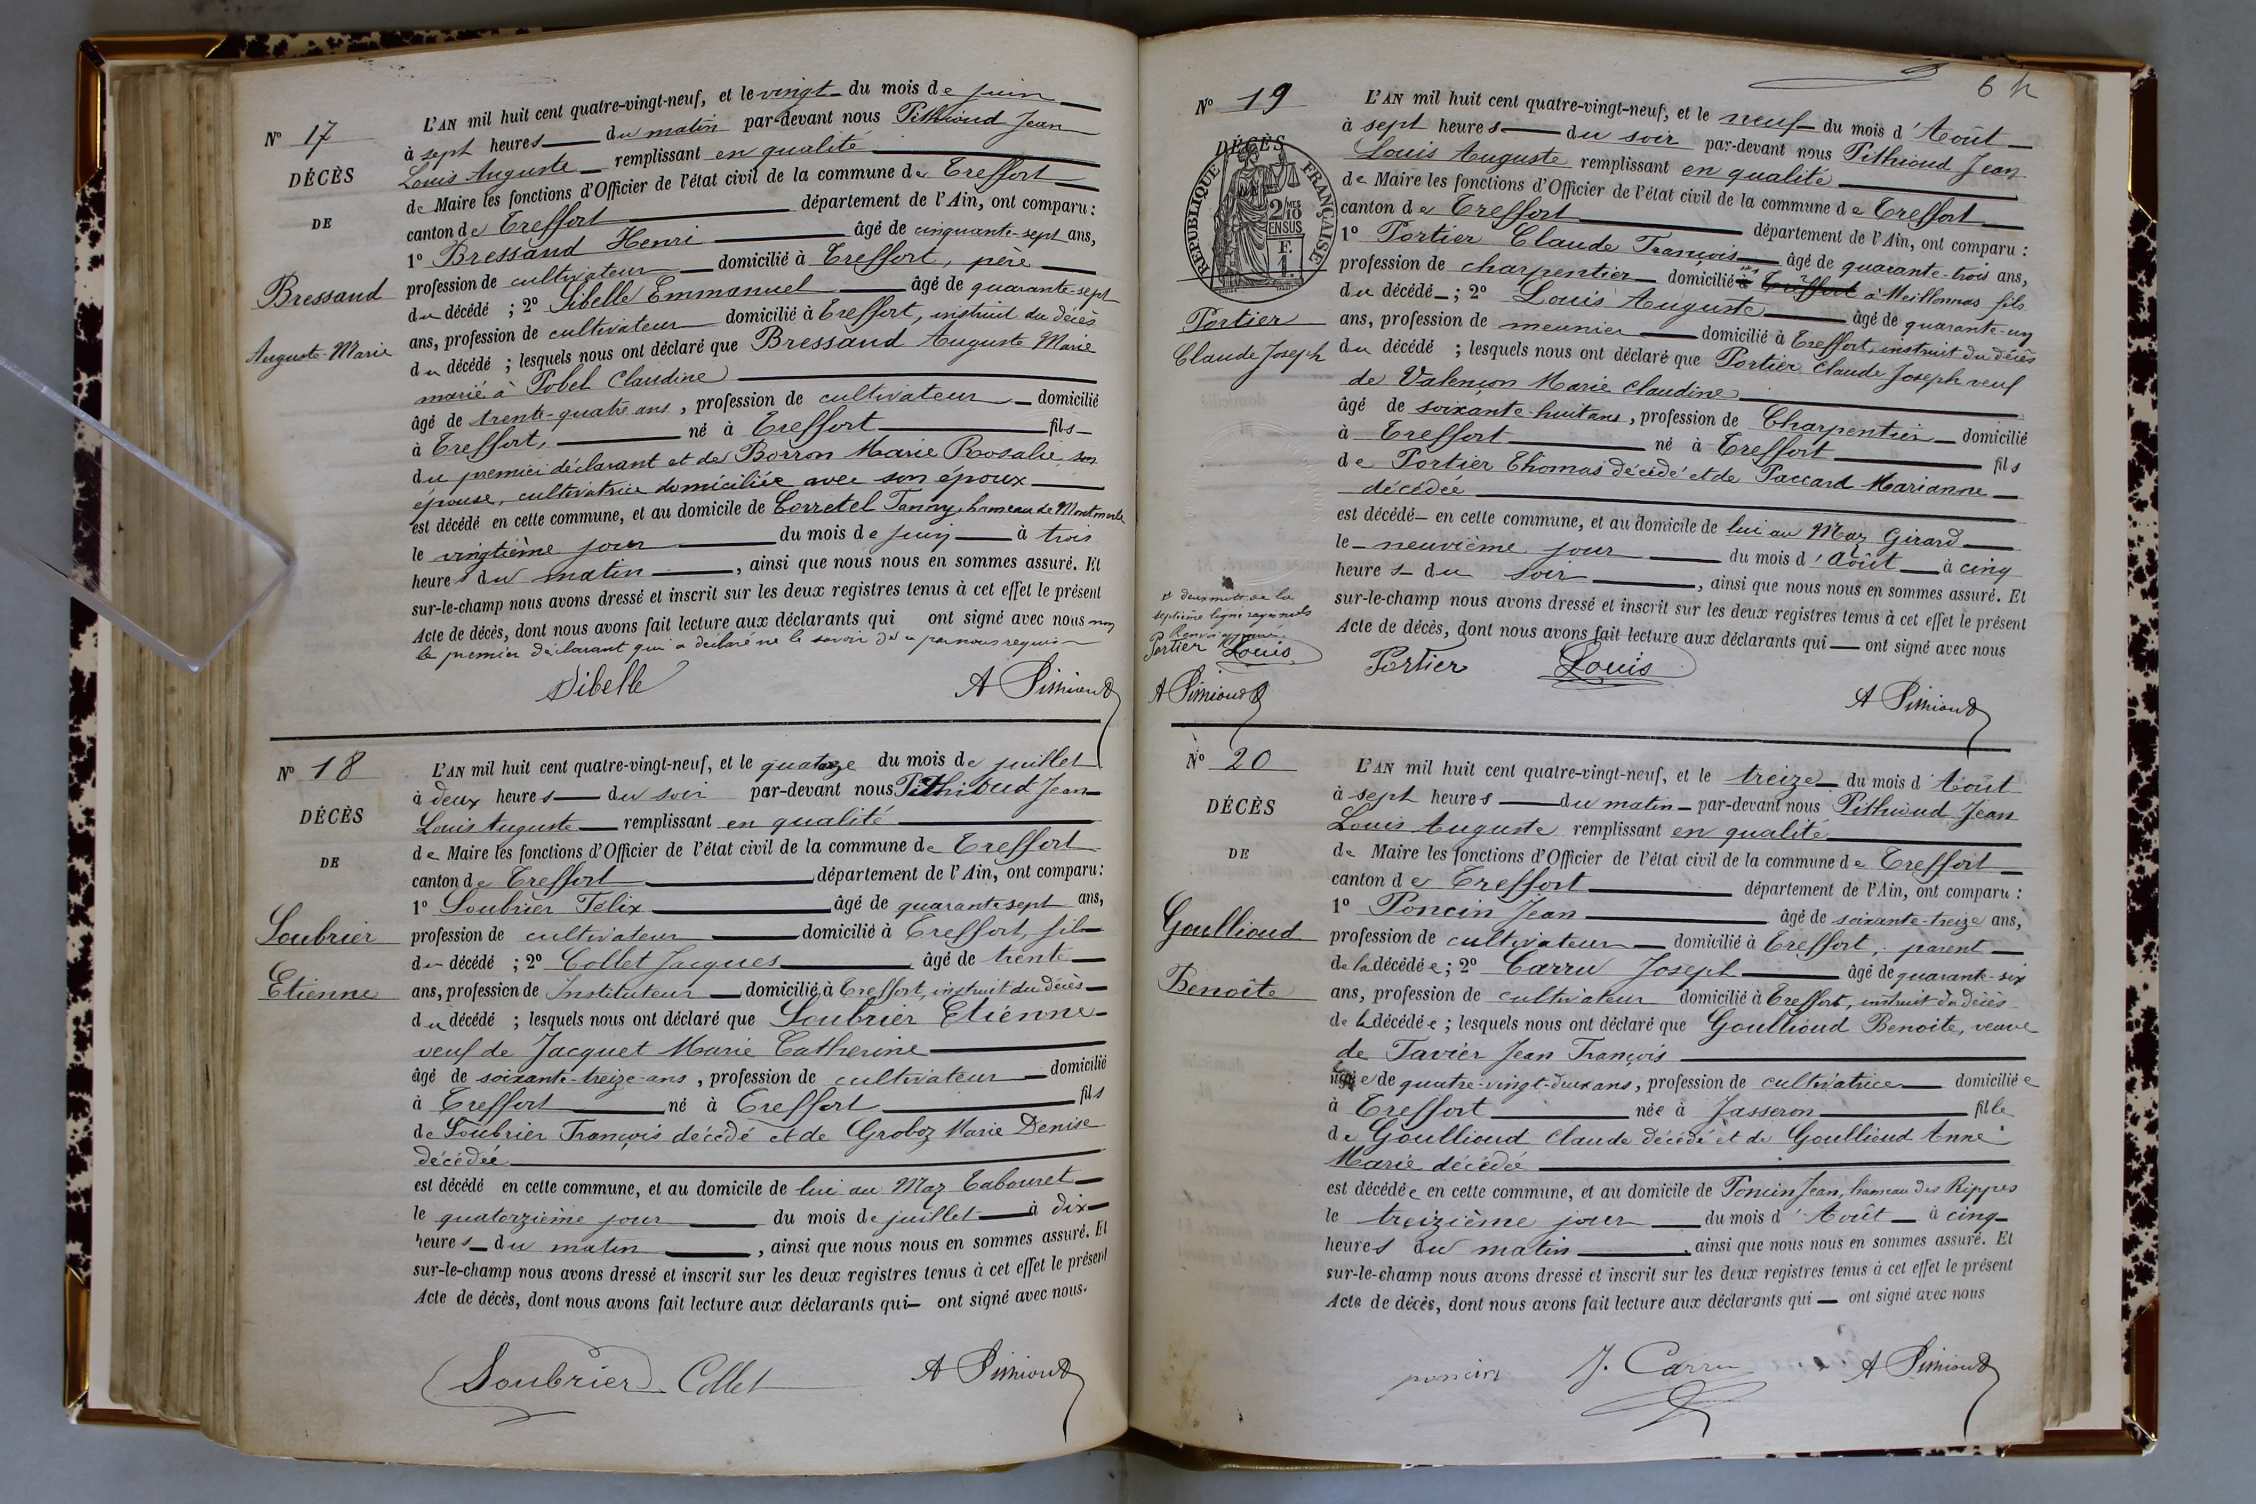 N° 17
DÉCÈS
DE
Bressand
Auguste-Marie
L'AN mil huit cent quatre-vingt-neuf, et le vingt du mois de juin
à sept heures du matin par-devant nous Pithioud Jean
Louis Auguste remplissant en qualité
de Maire les fonctions d'Officier de l'état civil de la commune de Treffort
canton de Treffort département de l'Ain, ont comparu :
1° Bressand Henri âgé de cinquante-sept ans,
profession de cultivateur domicilié à Treffort, père
du décédé ; 2° Sibelle Emmanuel âgé de quarante-sept
ans, profession de cultivateur domicilié à Treffort, instruit du décès
du décédé ; lesquels nous ont déclaré que Bressand Auguste Marie
marié à Pobel Claudine
âgé de trente-quatre ans, profession de cultivateur domicilié
à Treffort, né à Treffort fils
du premier déclarant et de Borron Marie Rosalie son
épouse, cultivatrice domiciliée avec son époux
est décédé en cette commune, et au domicile de Corretel Fanny, hameau de Montmerle
le vingtième jour du mois de juin à trois
heures du matin, ainsi que nous nous en sommes assuré. Et
sur-le-champ nous avons dressé et inscrit sur les deux registres tenus à cet effet le présent
Acte de décès, dont nous avons fait lecture aux déclarants qui ont signé avec nous non
le premier déclarant qui a déclaré ne le savoir de ce par nous requis
Sibelle A Pithioud
N° 18
DÉCÈS
DE
Soubrier
Etienne
L'AN mil huit cent quatre-vingt-neuf, et le quatorze du mois de juillet
à deux heures du soir par-devant nous Pithioud Jean
Louis Auguste remplissant en qualité
de Maire les fonctions d'Officier de l'état civil de la commune de Treffort
canton de Treffort département de l'Ain, ont comparu :
1° Soubrier Félix âgé de quarante sept ans,
profession de cultivateur domicilié à Treffort, fils
du décédé ; 2° Collet Jacques âgé de trente
ans, profession de Instituteur domicilié à Treffort, instruit du décès
du décédé ; lesquels nous ont déclaré que Soubrier Etienne
veuf de Jacquet Marie Catherine
âgé de soixante-treize ans, profession de cultivateur domicilié
à Treffort né à Treffort fils
de Soubrier François décédé et de Groboz Marie Denise
décédée
est décédé en cette commune, et au domicile de lui au Maz Tabouret
le quatorzième jour du mois de juillet à dix
heures du matin, ainsi que nous nous en sommes assuré. Et
sur-le-champ nous avons dressé et inscrit sur les deux registres tenus à cet effet le présent
Acte de décès, dont nous avons fait lecture aux déclarants qui ont signé avec nous.
Soubrier Collet A Pithioud
N° 19
DÉCÈS
RÉPUBLIQUE FRANÇAISE
2/10 MES
EN SUS
F.
1.
Portier
Claude Joseph
L'AN mil huit cent quatre-vingt-neuf, et le neuf du mois d'Août
à sept heures du soir par-devant nous Pithioud Jean
Louis Auguste remplissant en qualité
de Maire les fonctions d'Officier de l'état civil de la commune de Treffort
canton de Treffort département de l'Ain, ont comparu :
1° Portier Claude François âgé de quarante-trois ans,
profession de charpentier domicilié à Treffort à Meillonnas fils
du décédé ; 2° Louis Auguste âgé de quarante-un
ans, profession de meunier domicilié à Treffort, instruit du décès
du décédé ; lesquels nous ont déclaré que Portier Claude Joseph veuf
de Valençon Marie Claudine
âgé de soixante-huit ans, profession de Charpentier domicilié
à Treffort né à Treffort fils
de Portier Thomas décédé et de Paccard Marianne
décédée
est décédé en cette commune, et au domicile de lui au Maz Girard
le neuvième jour du mois d'Août à cinq
heures du soir, ainsi que nous nous en sommes assuré. Et
sur-le-champ nous avons dressé et inscrit sur les deux registres tenus à cet effet le présent
Acte de décès, dont nous avons fait lecture aux déclarants qui ont signé avec nous
deux mots à la
septième ligne rayés nuls
Portier Louis
A Pithioud
Portier Louis
A Pithioud
N° 20
DÉCÈS
DE
Goullioud
Benoîte
L'AN mil huit cent quatre-vingt-neuf, et le treize du mois d'Août
à sept heures du matin par-devant nous Pithioud Jean
Louis Auguste remplissant en qualité
de Maire les fonctions d'Officier de l'état civil de la commune de Treffort
canton de Treffort département de l'Ain, ont comparu :
1° Poncin Jean âgé de soixante-treize ans,
profession de cultivateur domicilié à Treffort, parent
de la décédée ; 2° Carru Joseph âgé de quarante-six
ans, profession de cultivateur domicilié à Treffort, instruit du décès
de la décédée ; lesquels nous ont déclaré que Goullioud Benoite, veuve
de Favier Jean François
âgée de quatre-vingt-deux ans, profession de cultivatrice domiciliée
à Treffort née à Jasseron fille
de Goullioud Claude décédé et de Goullioud Anne
Marie décédée
est décédée en cette commune, et au domicile de Poncin Jean, hameau des Rippes
le treizième jour du mois d'Août à cinq
heures du matin, ainsi que nous nous en sommes assuré. Et
sur-le-champ nous avons dressé et inscrit sur les deux registres tenus à cet effet le présent
Acte de décès, dont nous avons fait lecture aux déclarants qui ont signé avec nous
poncin J. Carru A Pithioud